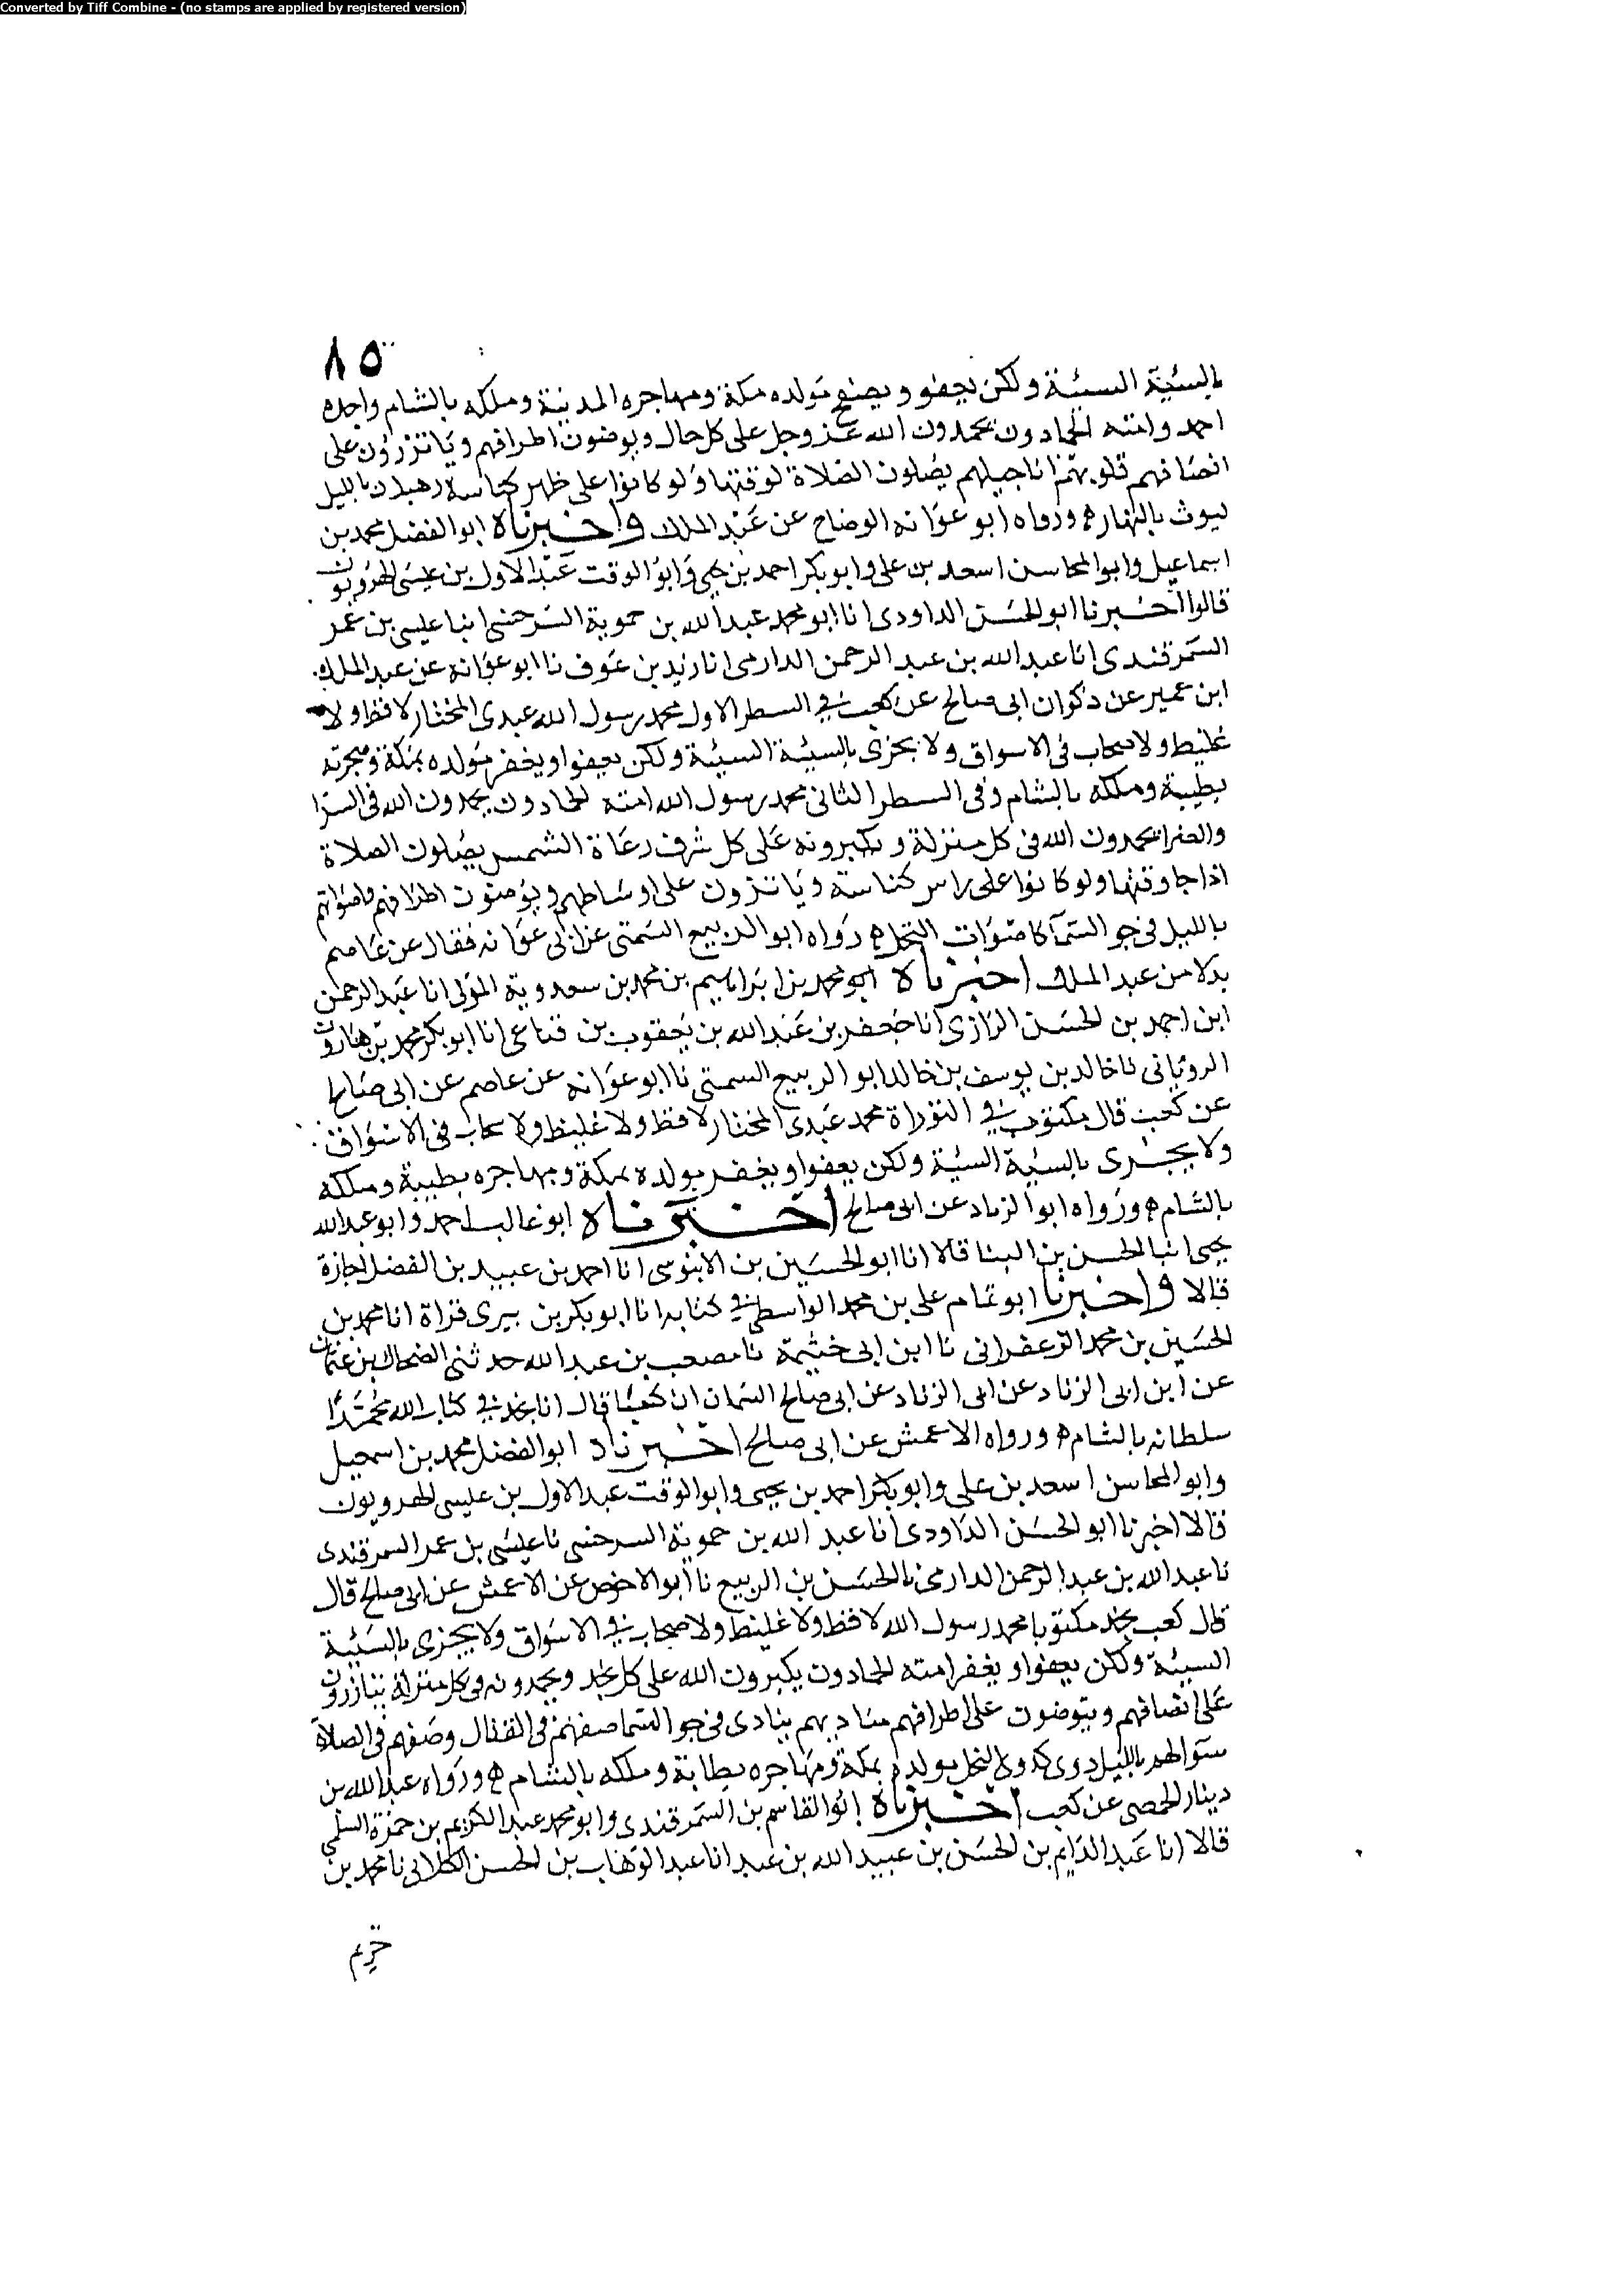 Converted by Tiff Combine - (no stamps are applied by registered version)
٨٥
بالسيئة السيئة ولكن يعفو ويصفح مولده مكة ومهاجره المدينة وملكه بالشام واجده
احمد وامته الحمادون يحمدون الله عز وجل على كل حال ويوضون اطرافهم وياتزرون على
انصافهم قلوبهم اناجيلهم يصلون الصلاة لوقتها ولو كانوا على ظهر كناسة رهبان بالليل
ليوث بالنهار ه ورواه ابو عوانه الوضاح عن عبد الملك واخبرناه ابو الفضل محمد بن
اسماعيل وابو المحاسن اسعد بن على وابو بكر احمد بن يحيى وابو الوقت عبد الاول بن عيسى الهرويون
قالوا اخبرنا ابو الحسن الداودى انا ابو محمد عبد الله بن حموية السرخسى انبا عيسى بن عمر
السمرقندى انا عبد الله بن عبد الرحمن الدارمى انا زيد بن عوف نا ابو عوانه عن عبد الملك
ابن عمير عن ذكوان ابى صالح عن كعب في السطر الاول محمد رسول الله عبدى المختار لا فظ ولا
غليظ ولا سحاب فى الاسواق ولا يجزى بالسيئة السيئة ولكن يعفوا ويغفر مولده بمكة وهجرته
بطيبة وملكه بالشام وفى السطر الثانى محمد رسول الله امته الحمادون يحمدون الله فى السرا
والضرا يحمدون الله فى كل منزلة ويكبرونه على كل شرف رعاة الشمس يصلون الصلاة
اذا جا وقتها ولو كانوا على راس كناسة وياتزرون على اوساطهم ويوضون اطرافهم واصواتهم
بالليل فى جو السما كاصوات النحل ه رواه ابو الربيع السمتى عن ابى عوانه فقال عن عاصم
بدلا من عبد الملك اخبرناه ابو محمد بن ابراهيم بن محمد بن سعدوية المولى انا عبد الرحمن
ابن احمد بن الحسن الرازى انا جعفر بن عبد الله بن يعقوب بن فناعى انا ابو بكر محمد بن هارون
الرويانى نا خالد بن يوسف بن خالد ابو الربيع السمتى نا ابو عوانه عن عاصم عن ابى صالح
عن كعب قال مكتوب في التوراة محمد عبدى المختار لا فظ ولا غليظ ولا سحاب فى الاسواق
ولا يجزى بالسيئة السيئة ولكن يعفوا ويغفر مولده بمكة ومهاجره بطيبة وملكه
بالشام ه ورواه ابو الزناد عن ابى صالح اخبرناه ابو غالب احمد وابو عبد الله
يحيى انبا الحسن بن البنا قالا انا ابو الحسين بن الابنوسى انا احمد بن عبيد بن الفضل اجازة
قالا واخبرنا ابو تمام على بن محمد الواسطى في كتابه انا ابو بكر بن بيرى قراة انا محمد بن
الحسين بن محمد الزعفرانى نا ابن ابى خثيمة نا مصعب بن عبد الله حدثنى الضحاك بن عثمان
عن ابن ابى الزناد عن ابى الزناد عن ابى صالح السمان ان كعبا قال انا نجد في كتاب الله محمدا
سلطانه بالشام ه ورواه الاعمش عن ابى صالح اخبرناه ابو الفضل محمد بن اسمعيل
وابو المحاسن اسعد بن على وابو بكر احمد بن يحيى وابو الوقت عبد الاول بن عيسى الهرويون
قالا اخبرنا ابو الحسن الداودى انا عبد الله بن حموية السرخسى نا عيسى بن عمر السمرقندى
نا عبد الله بن عبد الرحمن الدارمى نا الحسن بن الربيع نا ابو الاحوص عن الاعمش عن ابى صالح قال
قال كعب نجد مكتوبا محمد رسول الله لا فظ ولا غليظ ولا صخاب في الاسواق ولا يجزى بالسيئة
السيئة ولكن يعفوا ويغفر امته الحمادون يكبرون الله على كل نجد ويحمدونه فى كل منزلة يتازرون
على انصافهم ويتوضون على اطرافهم مناديهم ينادى فى جو السما صفهم فى القتال وصفهم فى الصلاة
سوا لهم بالليل دوى كدوى النحل مولده بمكة ومهاجره بطابة وملكه بالشام ه ورواه عبد الله بن
دينار الحمصى عن كعب اخبرناه ابو القاسم بن السمرقندى وابو محمد عبد الكريم بن حمزة السلمى
قالا انا عبد الدايم بن الحسن بن عبيد الله بن عبد انا عبد الوهاب بن الحسن الكلابى نا محمد بن
خريم